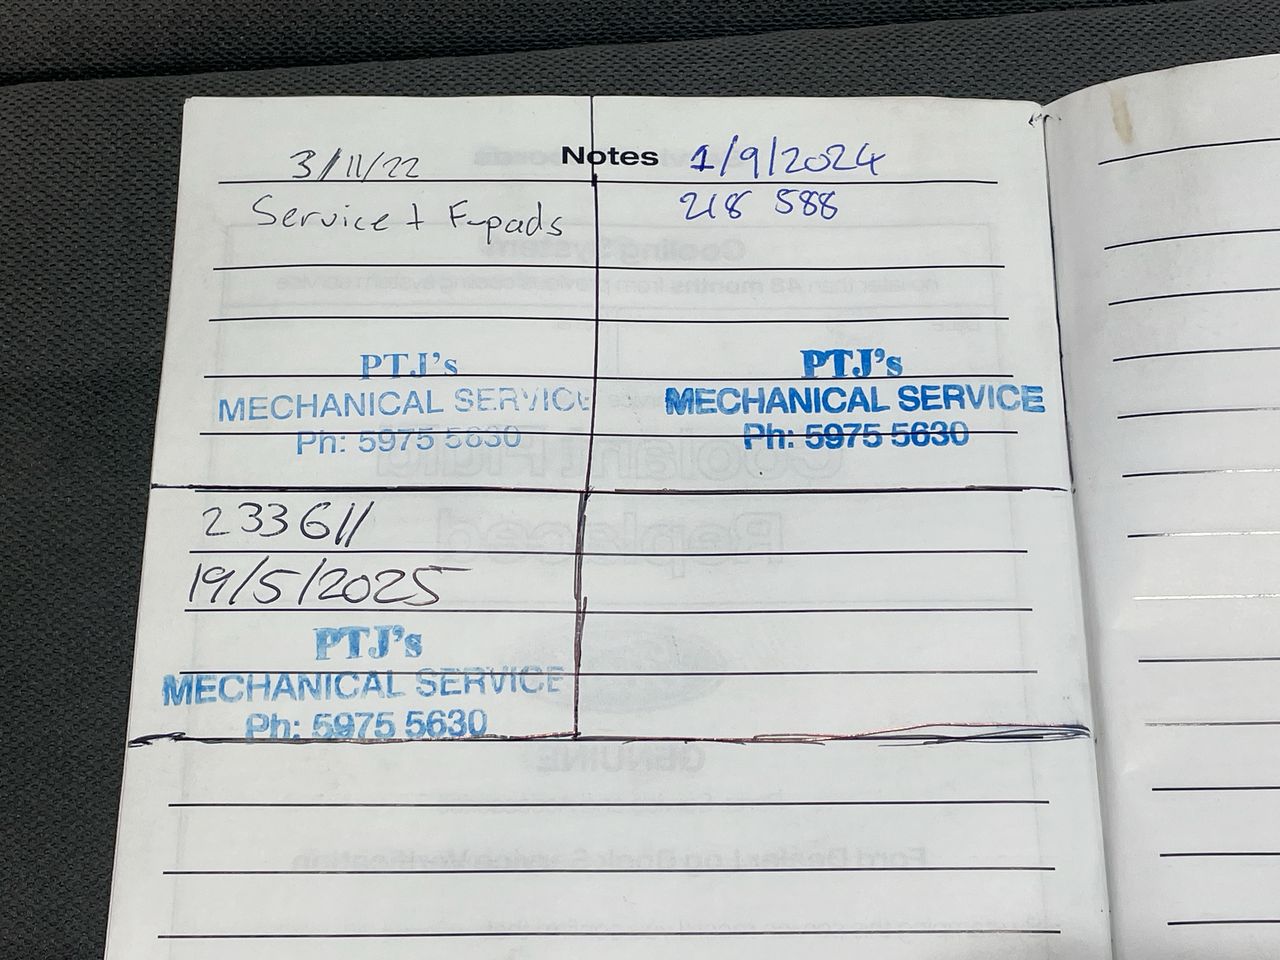 Notes
3/11/22
Service + F-pads
PTJ's
MECHANICAL SERVICE
Ph: 5975 5630
1/9/2024
218 588
PTJ's
MECHANICAL SERVICE
Ph: 5975 5630
233611
19/5/2025
PTJ's
MECHANICAL SERVICE
Ph: 5975 5630